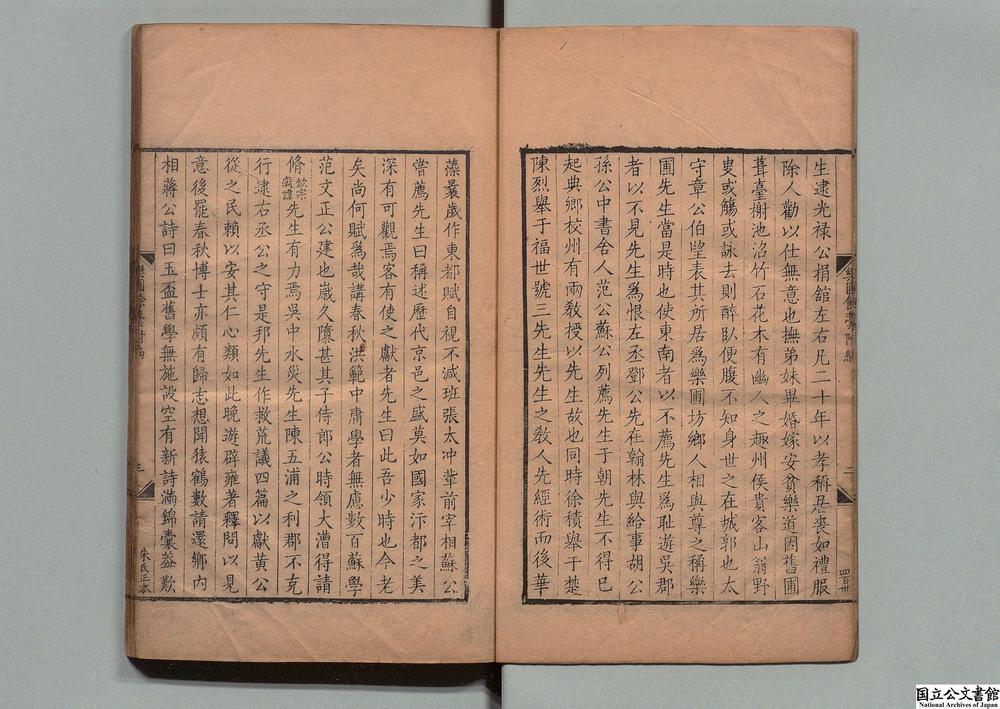 生逮光禄公捐舘左右凡二十年以孝稱居喪如禮服
除人勸以仕無意也撫弟妹畢婚嫁安貧樂道因舊圃
葺臺榭池沼竹石花木有幽人之趣州侯貴客山翁野
叟或觴或詠去則醉臥便腹不知身世之在城郭也太
守章公伯望表其所居爲樂圃坊鄉人相與尊之稱樂
圃先生當是時也使東南者以不薦先生爲恥遊吳郡
者以不見先生爲恨左丞鄧公先在翰林與給事胡公
孫公中書舍人范公蘇公列薦先生于朝先生不得已
起典鄉校州有兩教授以先生故也同時徐積舉于楚
陳烈舉于福世號三先生先生之教人先經術而後華
樂圃餘藁附編
二
四百卅
藻曩歲作東都賦自視不減班張太冲輩前宰相蘇公
嘗薦先生曰稱述歷代京邑之盛莫如國家汴都之美
深有可觀焉客有使之獻者先生曰此吾少時也今老
矣尚何賦爲哉講春秋洪範中庸學者無慮數百蘇學
范文正公建也嵗久隳甚其子侍郎公時領大漕得請
脩欽宗廟諱先生有力焉吳中水災先生陳五浦之利郡不克
行逮右丞公之守是邦先生作救荒議四篇以獻黃公
從之民賴以安其仁心類如此晚遊辟雍著釋問以見
意後罷春秋博士亦頗有歸志想聞猿鶴數請還鄉内
相蔣公詩曰玉盃舊學無施設空有新詩滿錦囊益歎
三
朱氏正本
国立公文書館
National Archives of Japan